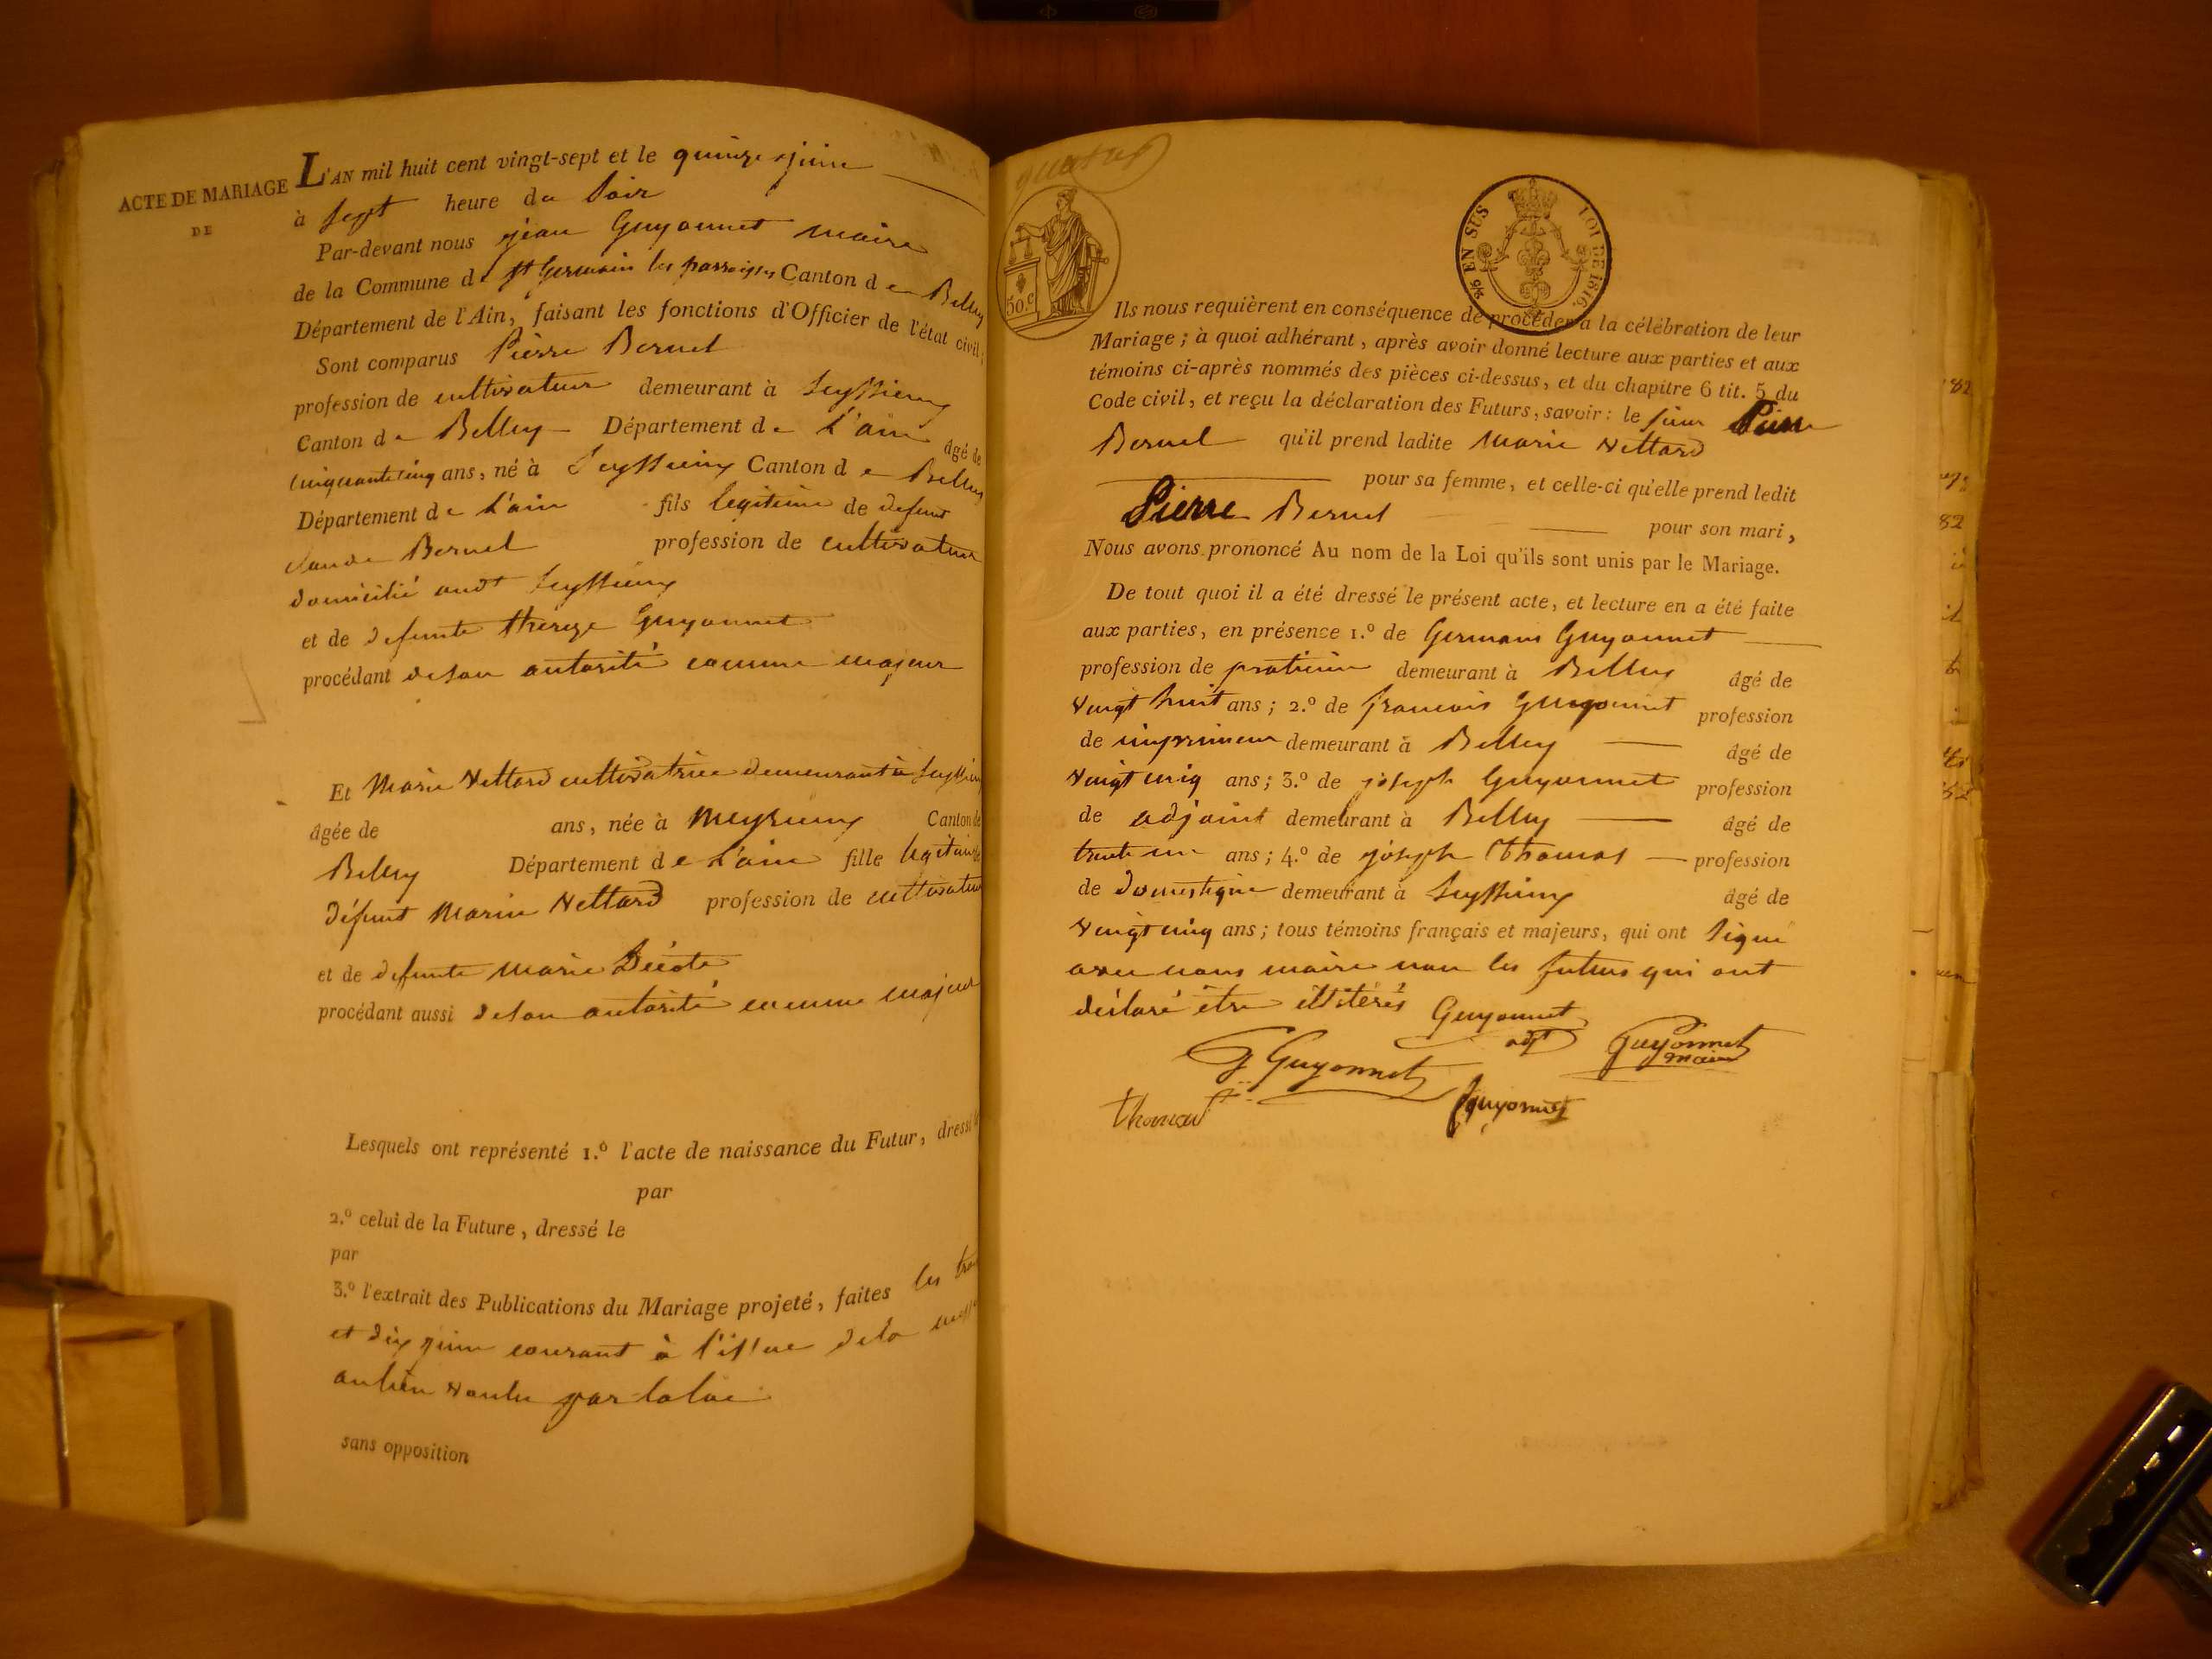 ACTE DE MARIAGE
DE
L'AN mil huit cent vingt-sept et le quinze juin
à sept heure du soir
Par-devant nous jean Guyonnet maire
de la Commune de St Germain les parroisses Canton de Belley
Département de l'Ain, faisant les fonctions d'Officier de l'état civil;
Sont comparus Pierre Bernel
profession de cultivateur demeurant à
Canton de Belley Département de L'ain âgé de
cinquante cinq ans, né à Canton de Belley
Département de L'ain fils legitime de defunt
Claude Bernel profession de cultivateur
domicilié audt
et de defunte thereze Guyonnet
procédant de son autorité comme majeur
Et Marie Vettard cultivatrice demeurant à
âgée de ans, née à Meyrieux Canton de
Belley Département de L'ain fille legitime
défunt Marin Vettard profession de cultivateur
et de defunte Marie
procédant aussi de son autorité comme majeur
Lesquels ont représenté 1.º l'acte de naissance du Futur, dressé le
par
2.º celui de la Future, dressé le
par
3.º l'extrait des Publications du Mariage projeté, faites les trois
et dix juin courant à l'issue de la messe
au lieu voulu par la loi
sans opposition
50.c
EN SUS LOI DE 1816.
Ils nous requièrent en conséquence de procéder à la célébration de leur
Mariage; à quoi adhérant, après avoir donné lecture aux parties et aux
témoins ci-après nommés des pièces ci-dessus, et du chapitre 6 tit. 5 du
Code civil, et reçu la déclaration des Futurs, savoir: le sieur Pierre
Bernel qu'il prend ladite Marie Vettard
pour sa femme, et celle-ci qu'elle prend ledit
Pierre Bernel pour son mari,
Nous avons prononcé Au nom de la Loi qu'ils sont unis par le Mariage.
De tout quoi il a été dressé le présent acte, et lecture en a été faite
aux parties, en présence 1.º de Germain Guyonnet
profession de praticien demeurant à Belley âgé de
vingt huit ans; 2.º de francois Guyonnet profession
de imprimeur demeurant à Belley âgé de
vingt cinq ans; 3.º de joseph Guyonnet profession
de adjoint demeurant à Belley âgé de
trente un ans; 4.º de joseph Thomas profession
de domestique demeurant à âgé de
vingt cinq ans; tous témoins français et majeurs, qui ont signé
avec nous maire non les futurs qui ont
déclaré être illiterés Guyonnet
adjt Guyonnet
maire
G Guyonnet
Thomas Guyonnet